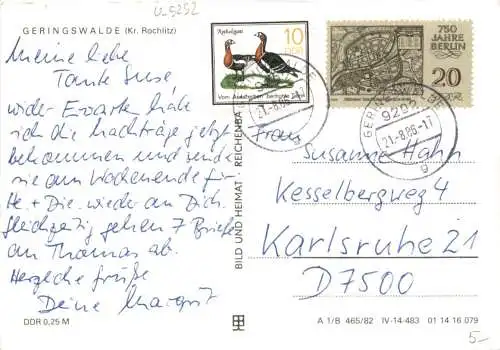 U-5252
GERINGSWALDE (Kr. Rochlitz)
Meine liebe
Tante Suse
wider Erwarten habe
ich die Nachträge jetzt
bekommen und sende
sie am Wochenende für
He. + Die. wieder an Dich.
Gleichzeitig gehen 7 Briefe
an Thomas ab.
Herzliche Grüße
Deine Margit
DDR 0,25 M
BILD UND HEIMAT · REICHENBA
Rothalsgans
10
DDR
Vom Aussterben bedrohte Tiere
750
JAHRE
BERLIN
20
DDR
GERINGSWALDE
21.-8.86
g
GERINGSWALDE
9292
21.-8.86-17
g
Frau
Susanna Hahn
Kesselbergweg 4
Karlsruhe 21
D7500
A 1/B 465/82 IV-14-483 01 14 16 079
5-